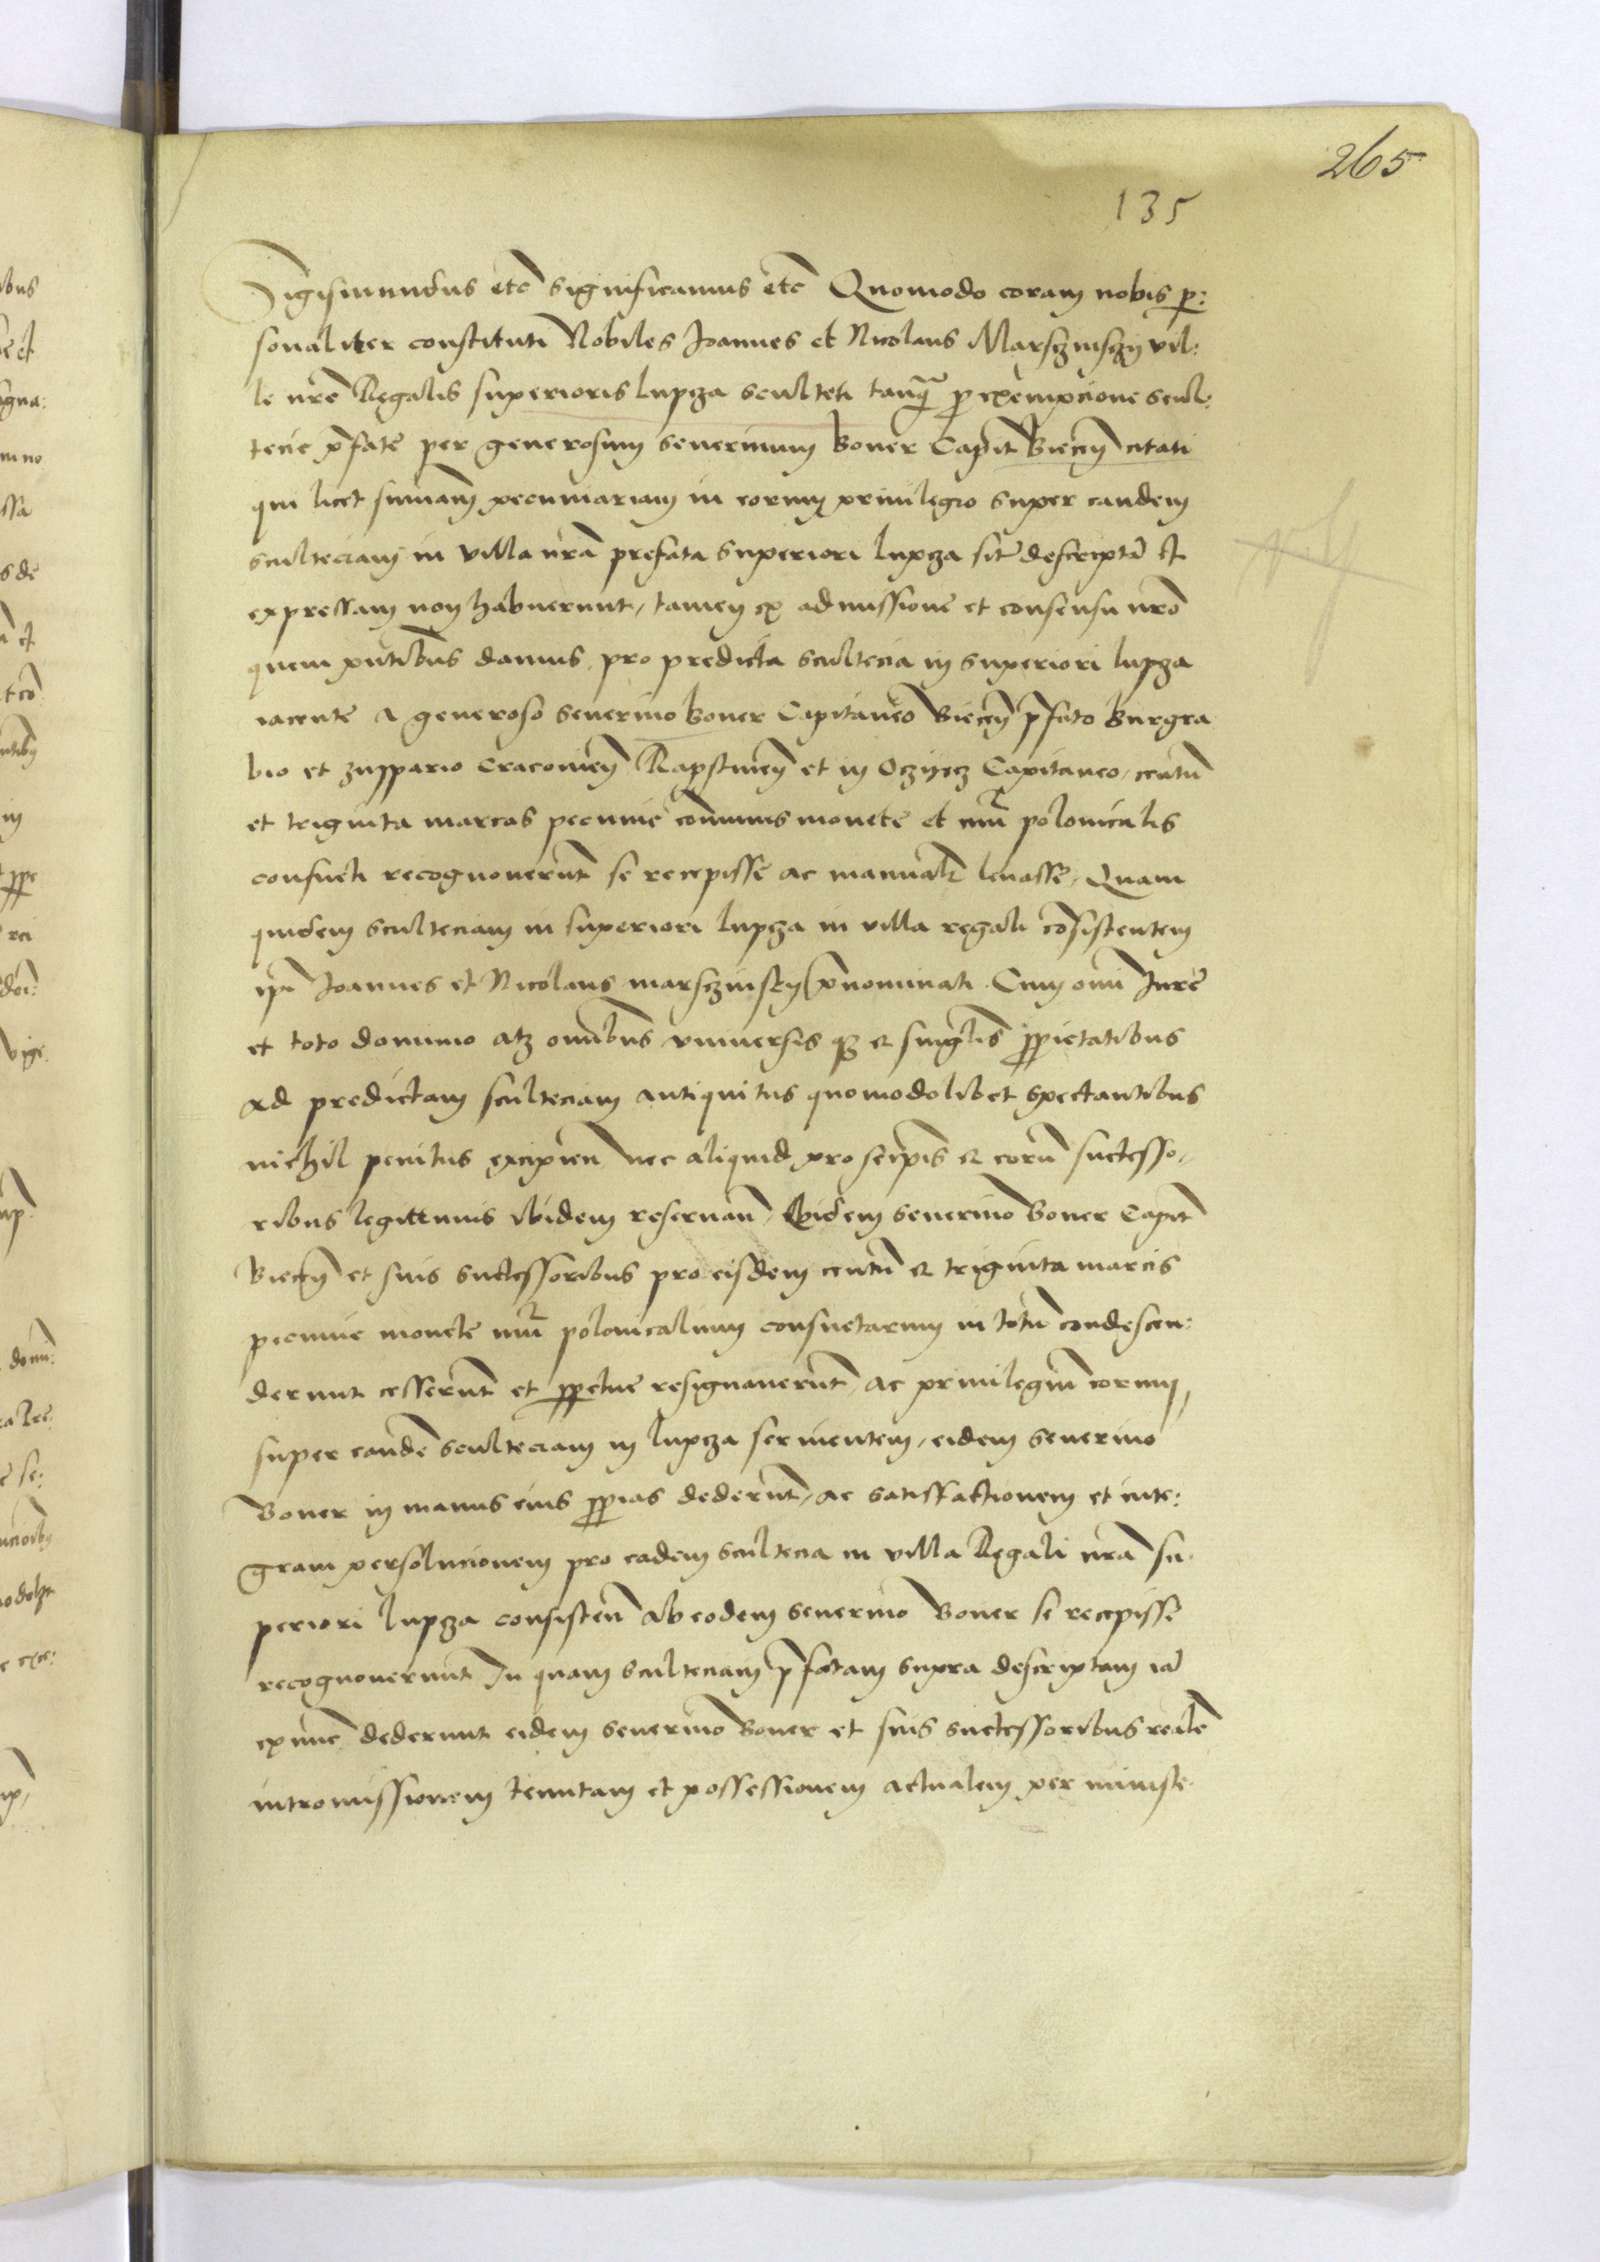 265
135
Sigismundus etc significamus etc Quomodo coram nobis p:
sonaliter constituti Nobiles Joannes et Nicolaus Marsczinsczy vil:
le nre Regalis superioris lupcza sculteti tanq̃ p exempcione scul:
tecie p̃fate per generosum Seuerinum Boner Capit Biecen̄ citati
qui licet summam pecuniariam in eorum priuilegio super eandem
sculteciam in villa nra prefata superiori lupcza sitr̄ descriptā et
expressam non habuerunt, tamen ex admissione et consensu nr̄o
quem pn̄tibus damus pro predicta scultecia in superiori lupcza
iacente A generoso Seuerino Boner Capitaneo Biecen̄ p̃fato Burgra
bio et zuppario Cracouien̄ Rapstinen̄ et in Oczijecz Capitaneo, centum
et triginta marcas pecunie com̄unis monete et nu͞i polonicalis
consueti recognouerūt se recepisse ac manualr̄ leuasse, Quam
quidem sculteciam in superiori lupcza in villa regali cōsistentem
ip̄i Joannes et Nicolaus marsczinscy p̄nominati Cum om̄i Jure
et toto dominio atq; om̄ibus vniuersis q; et singulis p̄prietatibus
Ad predictam sculteciam antiquitus quomodolibet spectantibus
nichil penitus excipien̄ nec aliquid pro seip̄is et eorū successo-
ribus legittimis ibidem reseruan̄, Eidem Seuerino Boner Capit̄
Biecen̄ et suis successoribus pro eisdem centū et triginta marcis
pecunie monete nu͞i polonicalium consuetarum in totū condescen:
derunt cesserūt et p̄petue resignauerūt, ac priuilegiū eorum,
super eandē scultecciam in lupcza seruientem, eidem Seuerino
Boner in manus eius p̄prias dederūt, ac satisfactionem et inte:
gram persolucionem pro eadem scultecia in villa Regali nrā su-
periori lupcza consisten̄ ab eodem Seuerino Boner se recepisse
recognouerunt In quam scultecciam p̄fatam supra descriptam iā
ex nunc dederunt eidem Seuerino Boner et suis successoribus realē
intromissionem tenutam et possessionem actualem per ministe-